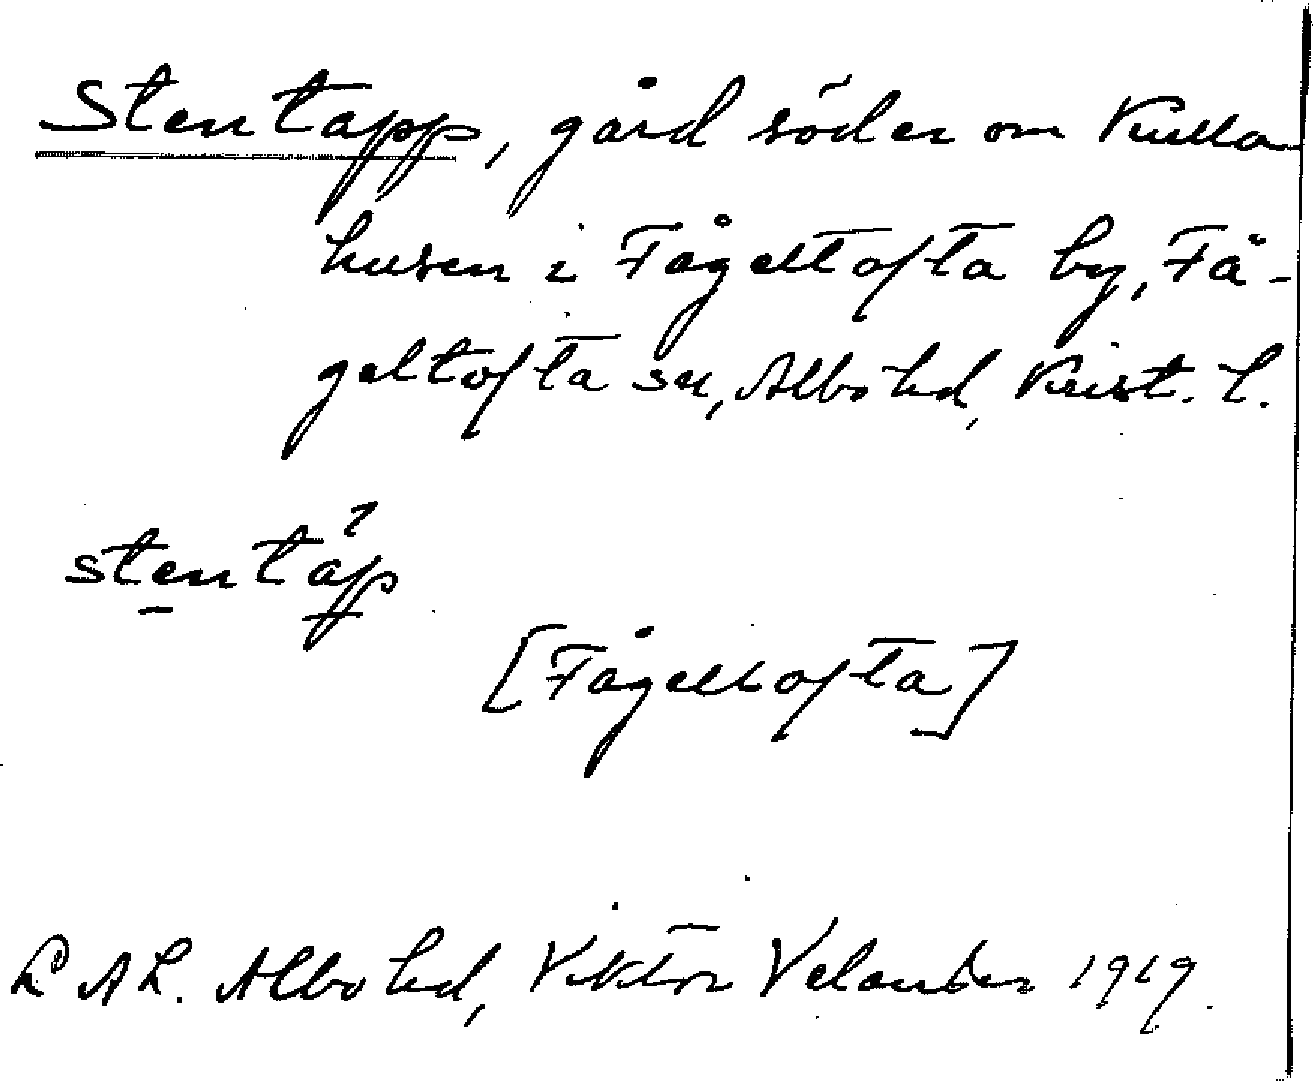 Stentapp, gård söder om Kulla
husen i Fågeltofta by, Få-
geltofta sn, Albo hd, Krist. l.
stentáp
[Fågeltofta]
LAL. Albo hd, Viktor Velander 1919.